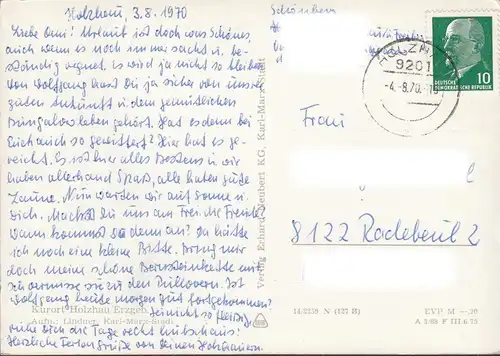 Holzhau, 3.8.1970
Liebe Omi! Urlaub ist doch was Schönes,
auch wenn es noch immer sacht u. be-
ständig regnet. Es wird ja nicht so bleiben
Von Wolfgang hast Du ja sicher von unsrer
guten Ankunft u. dem gemütlichen
Bungalowleben gehört. Hat es denn bei
Euch auch so gewittert? Hier hat es ge-
reicht. Es ist hier alles Bestens u. wir
haben allerhand Spaß, alle haben gute
Laune. Nun warten wir auf Sonne u.
Dich. Machst Du uns am Frei. die Freude
wann kommst Du denn an? Da hätte
ich noch eine kleine Bitte. Bring mir
doch meine schöne Bernsteinkette mit
den Pullovern. Ist
Wolfgang heute morgen gut fortgekommen?
Sei nicht so fleißig,
ruhe Dich die Tage recht hübsch aus!
Herzliche Feriengrüße von Deinen Holzhauern.
Kurort Holzhau Erzgeb.
Aufn.: Lindner, Karl-Marx-Stadt
Verlag Erhard Neubert KG, Karl-Marx-Stadt
Schönheim
HOLZHAU
9201
-4.-8.70.
DEUTSCHE
DEMOKRATISCHE REPUBLIK
10
Frau
8122 Radebeul 2
14/2259 N (827 B)
EVP M -,20
A 3/68 F III 6 75